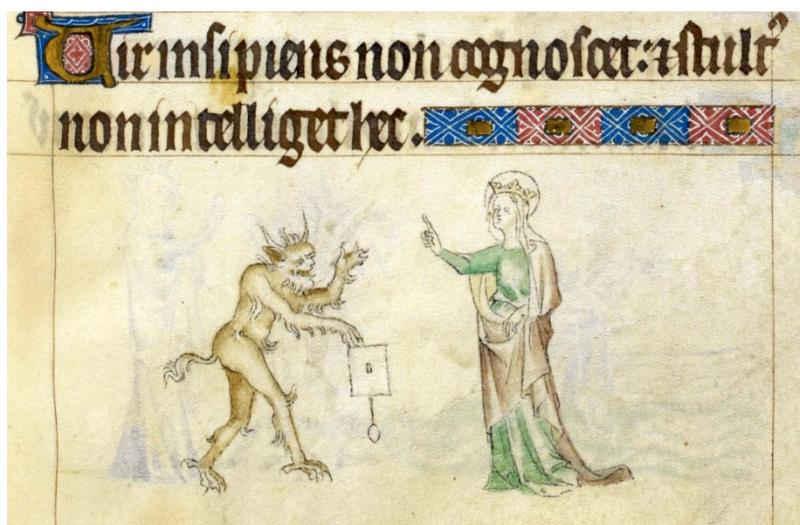 Vir insipiens non cognoscet: ⁊ stult᾿
non intelliget hec.